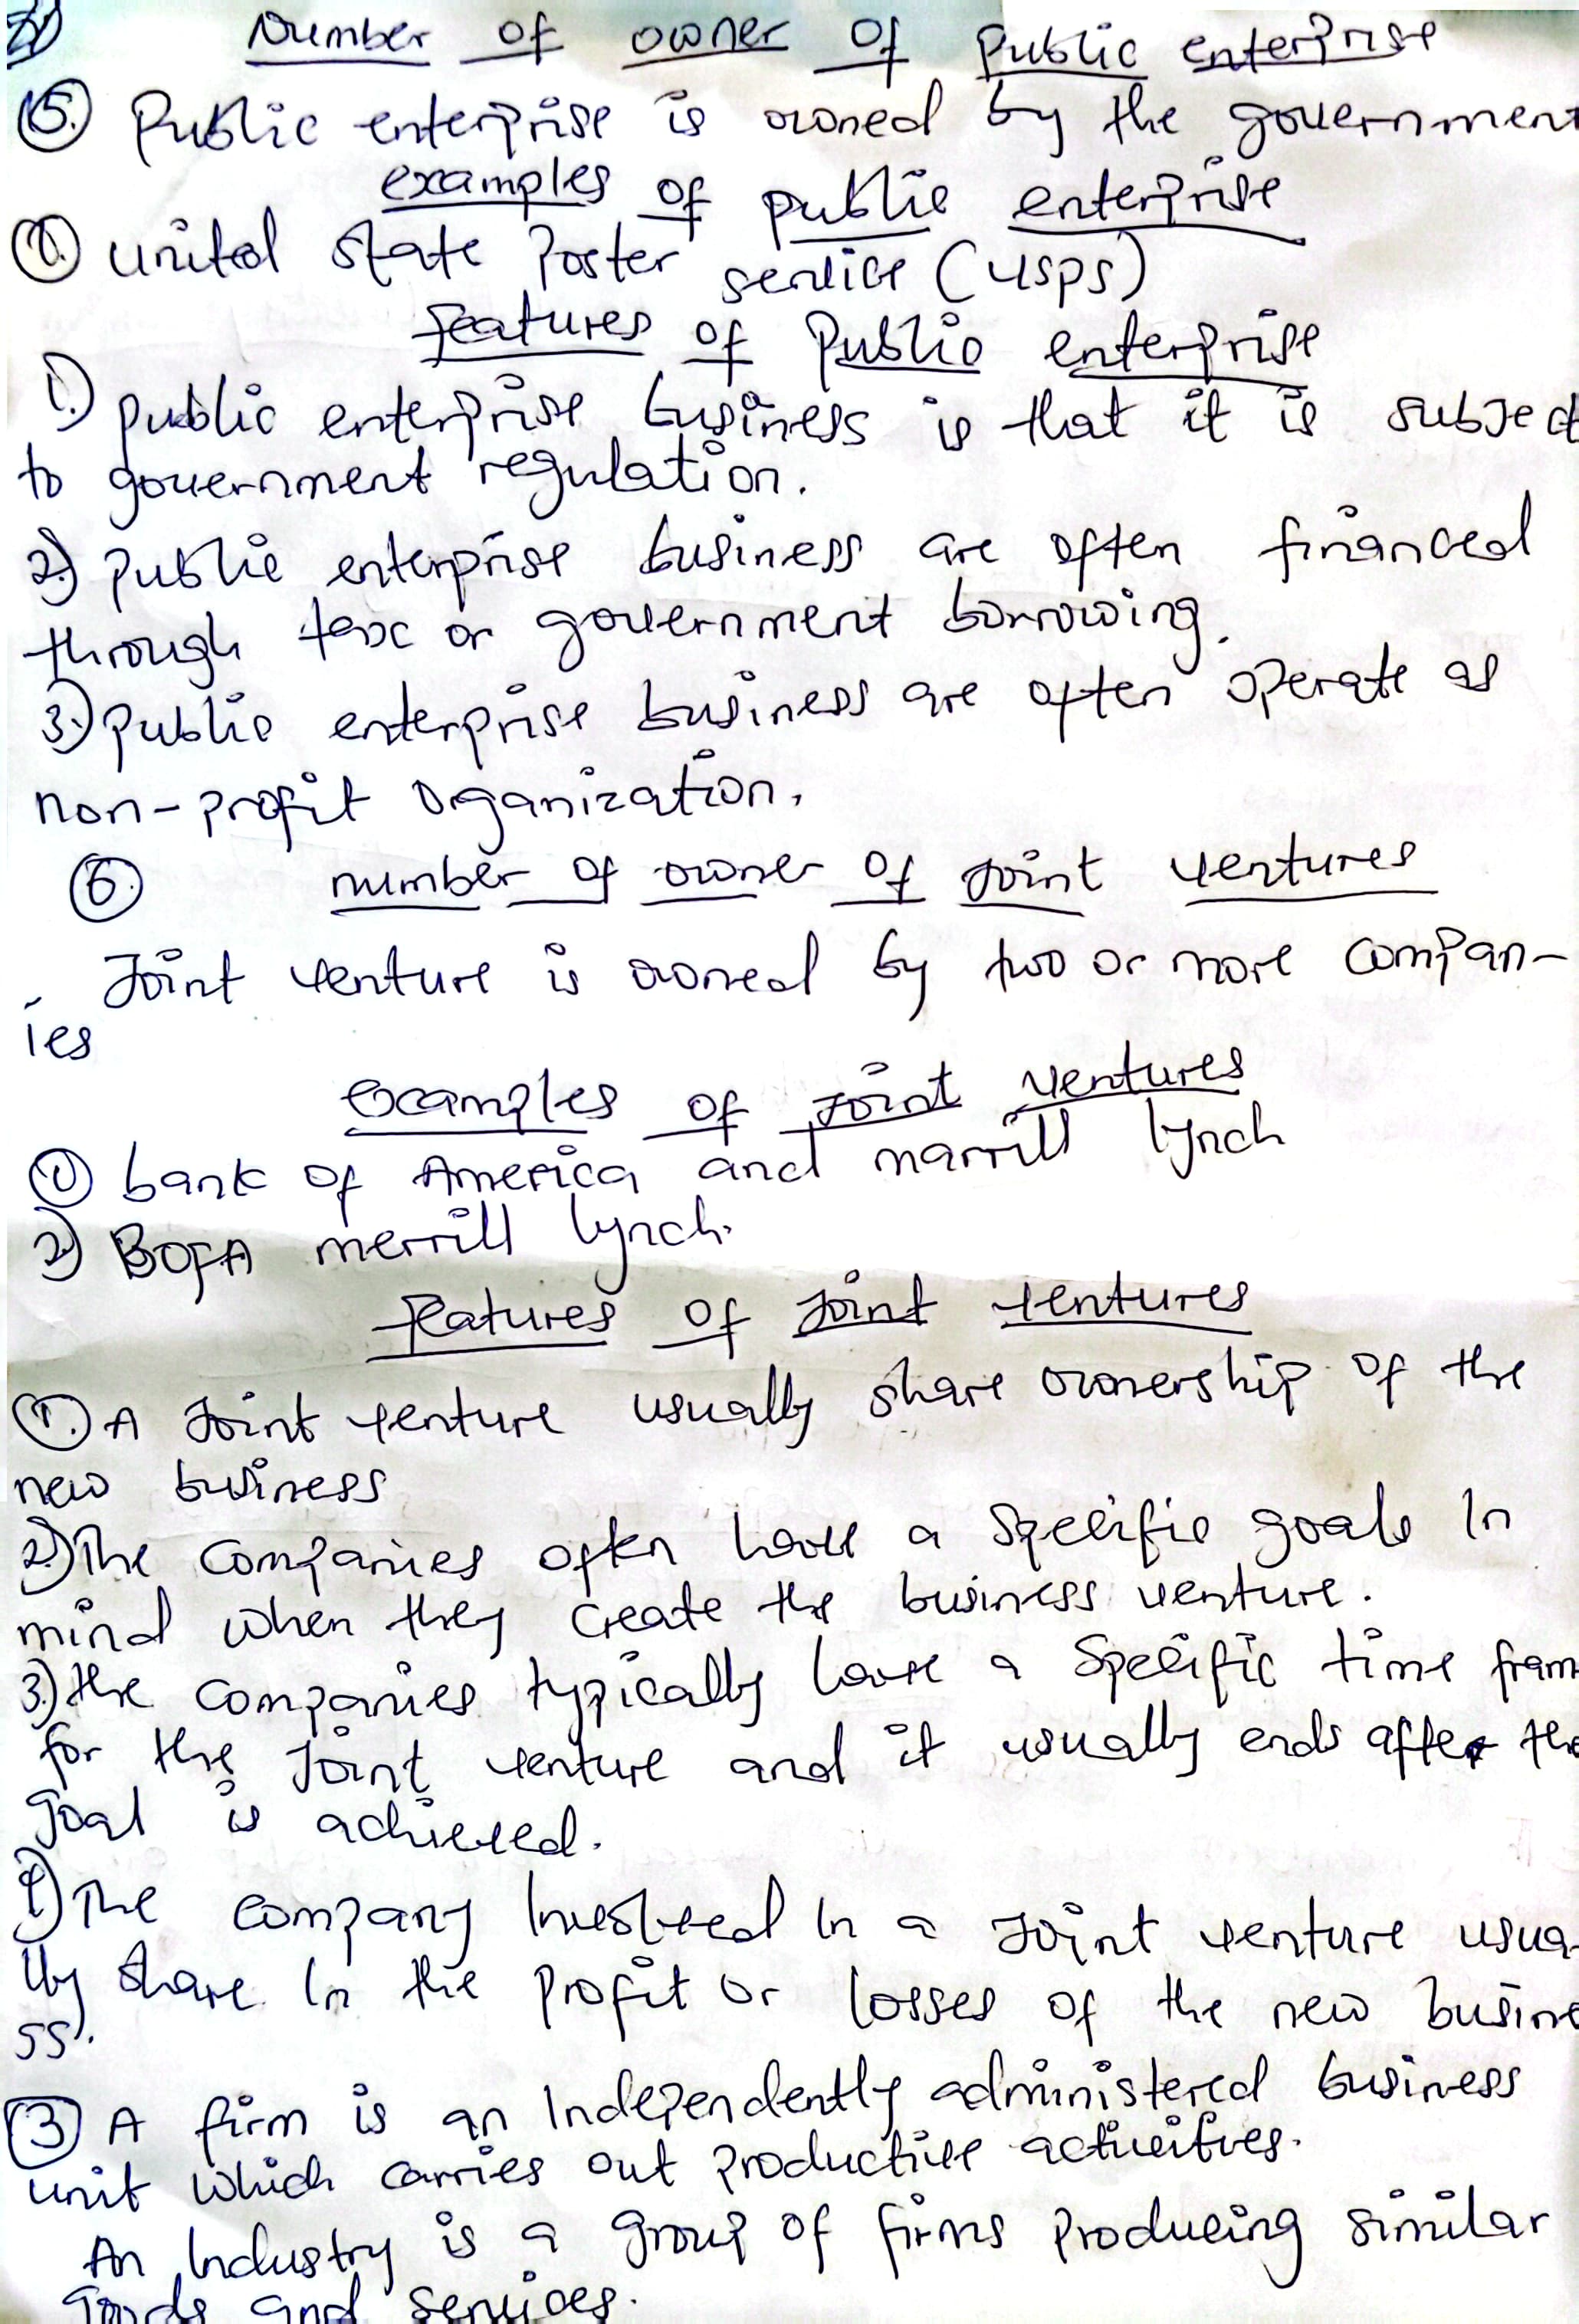 Number of owner of Public enterprise
5. Public enterprise is owned by the government
examples of public enterprise
1. united state Poster service (USPS)
features of Public enterprise
1.) public enterprise business is that it is subject
to government regulation.
2.) public enterprise business are often financed
through tax or government borrowing.
3.) public enterprise business are often operate as
non-profit organization.
6. number of owner of Joint ventures
Joint venture is owned by two or more compan-
ies
examples of Joint ventures
1) bank of America and marrill lynch
2) BOFA merrill lynch.
features of Joint ventures
1. A Joint venture usually share ownership of the
new business
2.) The companies often have a specific goals In
mind when they create the business venture.
3.) the companies typically have a specific time fram
for the Joint venture and it usually ends after the
goal is achieved.
4) The company Involved In a Joint venture usua
lly share In the profit or losses of the new busine
ss.
3 A firm is an Independently administered business
unit which carries out productive activities.
An Industry is a group of firms producing similar
goods and services.